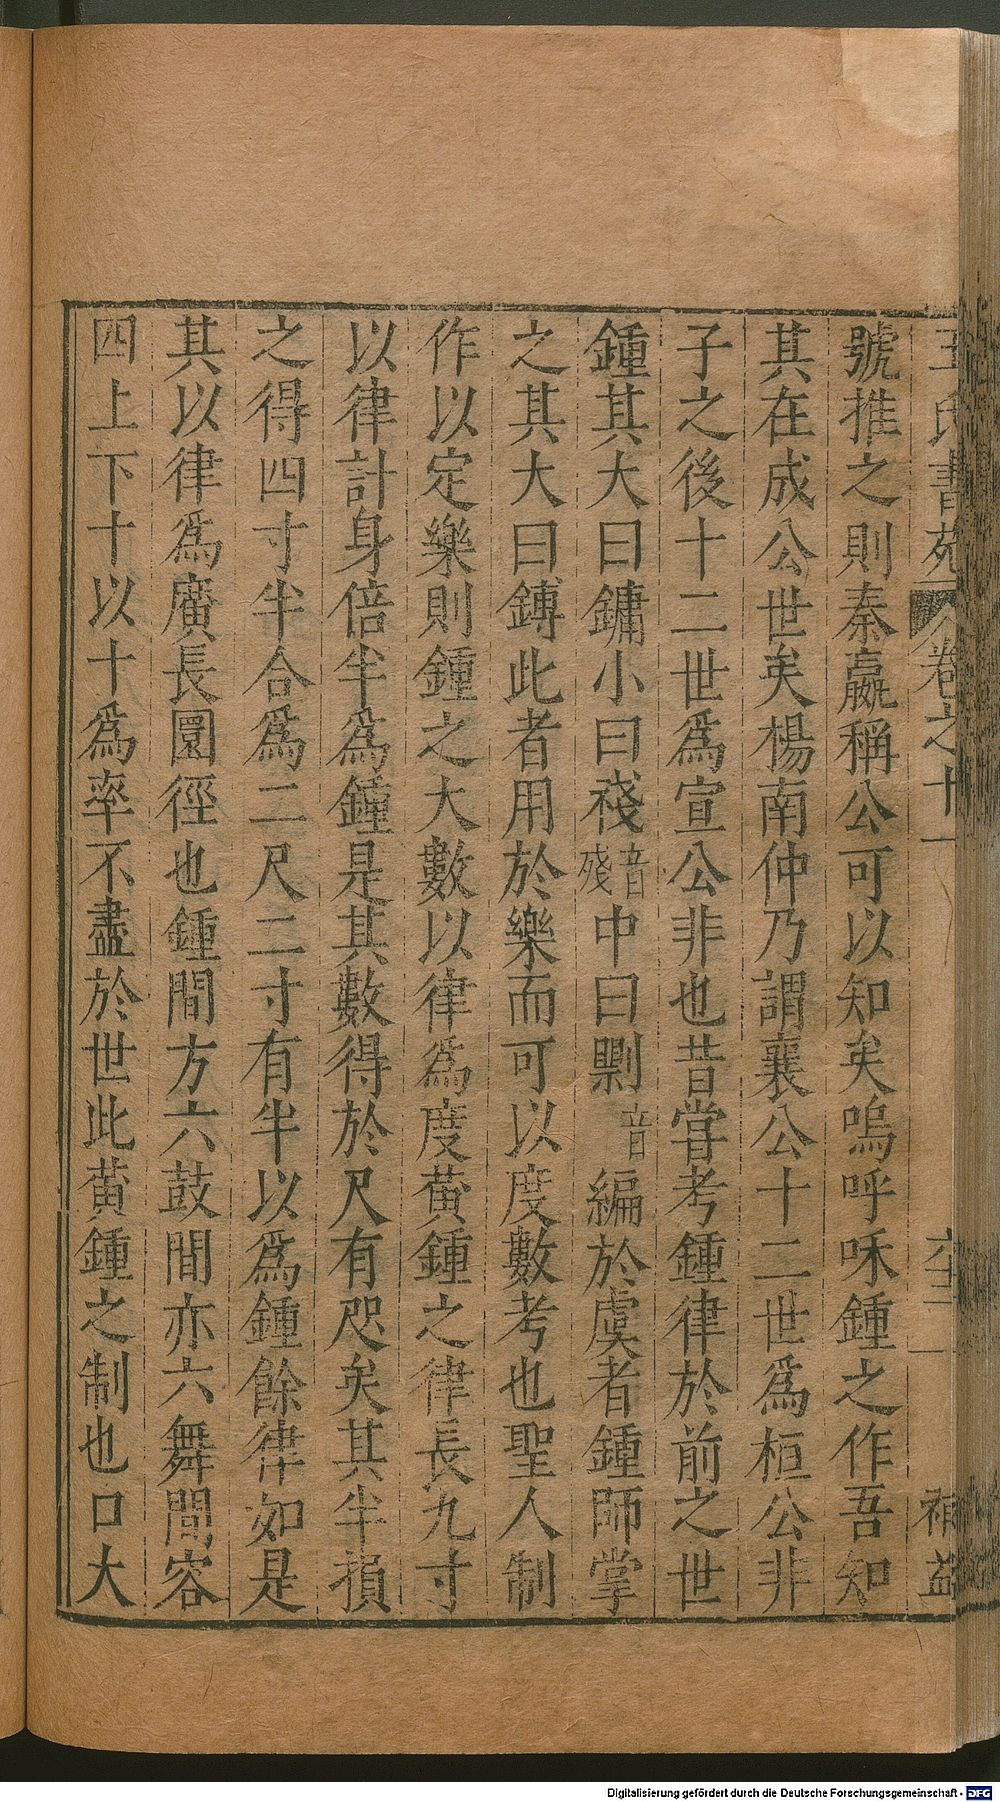 王氏書苑 卷之十一 六十一 補益
號推之則秦嬴稱公可以知矣嗚呼咊鍾之作吾知
其在成公世矣楊南仲乃謂襄公十二世爲桓公非
子之後十二世爲宣公非也昔甞考鍾律於前之世
鍾其大曰鏞小曰棧音殘中曰剽音編於虡者鍾師掌
之其大曰鎛此者用於樂而可以度數考也聖人制
作以定樂則鍾之大數以律爲度黃鍾之律長九寸
以律計身倍半爲鍾是其數得於尺有咫矣其半損
之得四寸半合爲二尺二寸有半以爲鍾餘律如是
其以律爲廣長圜徑也鍾間方六鼓間亦六舞間容
四上下十以十爲率不盡於世此黃鍾之制也口大
Digitalisierung gefördert durch die Deutsche Forschungsgemeinschaft - DFG